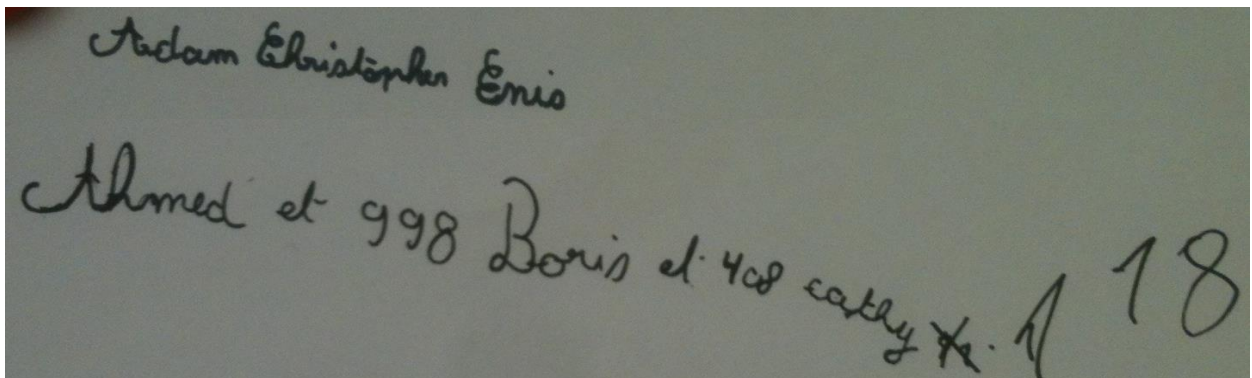 Adam Christopher Enis
Ahmed et 998 Boris et 408 cathy 1 18